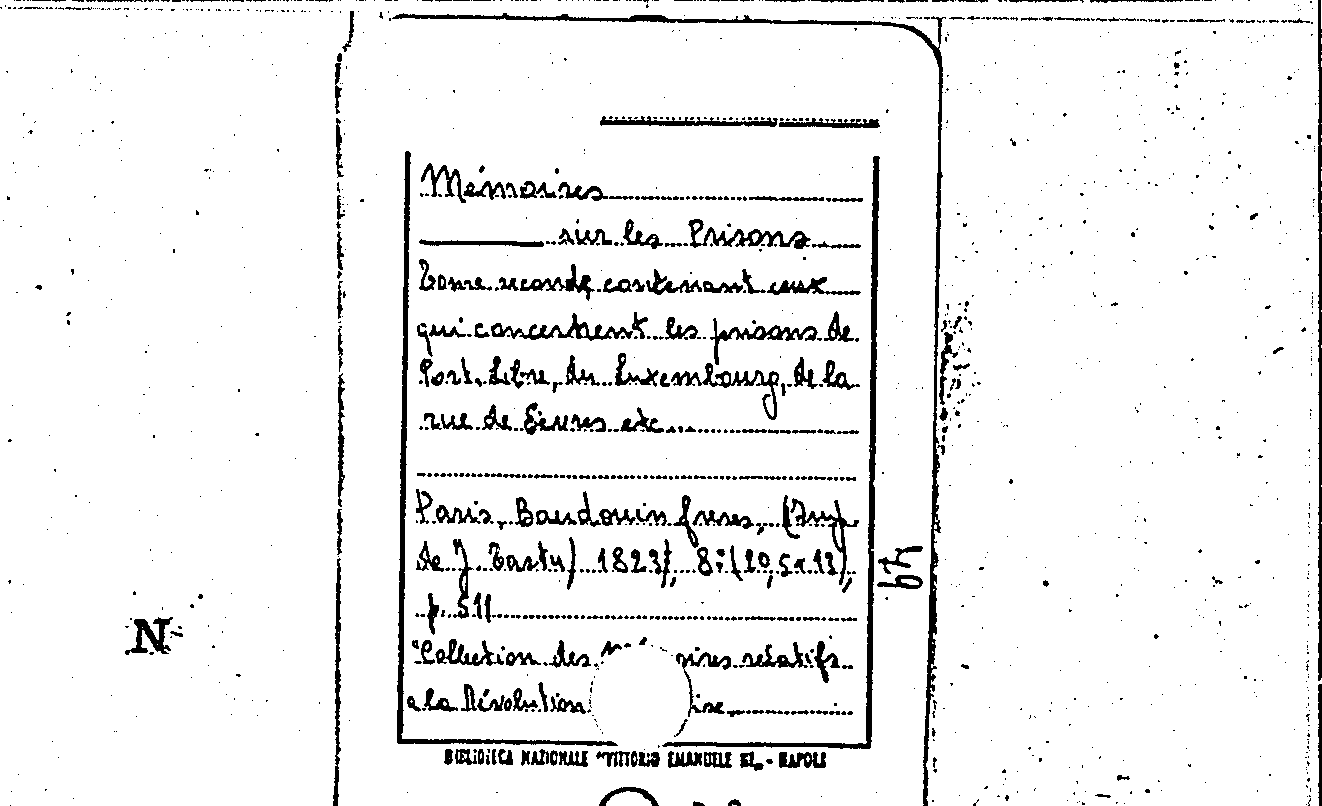 Mémoires
sur les Prisons
Tome second, contenant ceux
qui concernent les prisons de
Port-Libre, du Luxembourg, de la
rue de Sèvres etc...
Paris, Baudouin freres, (Imp.
de J. Tastu) 1823, 8° (20,5x13),
p. 511
"Collection des res relatifs
a la Révolution ise
BIBLIOTECA NAZIONALE "VITTORIO EMANUELE III" - NAPOLI
N